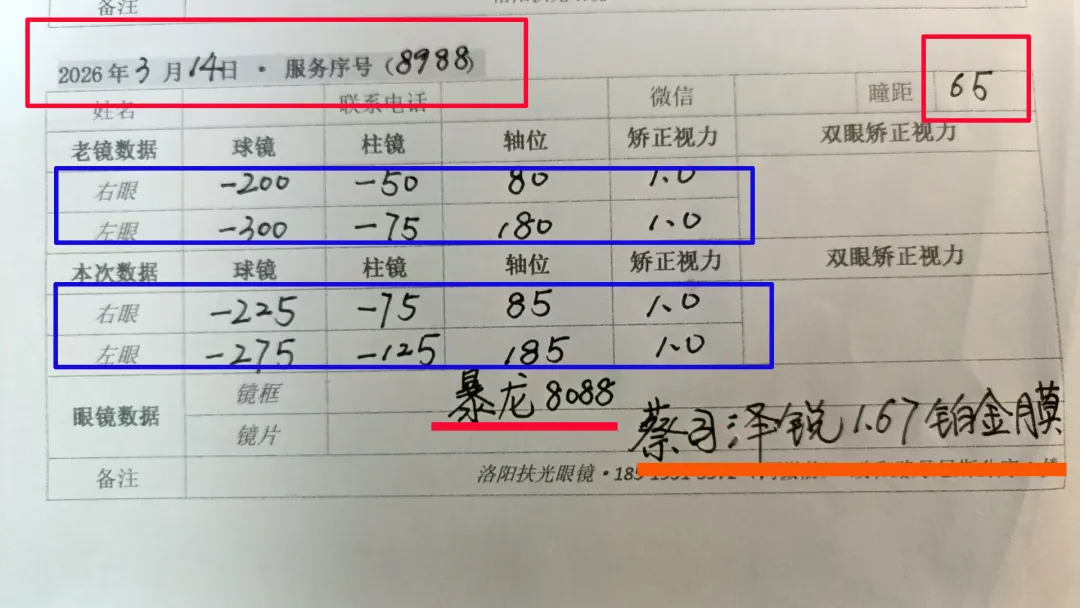 备注
2026年3月14日 · 服务序号（8988）
姓名 联系电话 微信 瞳距 65
老镜数据 球镜 柱镜 轴位 矫正视力 双眼矫正视力
右眼 -200 -50 80 1.0
左眼 -300 -75 180 1.0
本次数据 球镜 柱镜 轴位 矫正视力 双眼矫正视力
右眼 -225 -75 85 1.0
左眼 -275 -125 185 1.0
眼镜数据 镜框 暴龙8088
镜片 蔡司泽锐1.67铂金膜
备注 洛阳扶光眼镜·